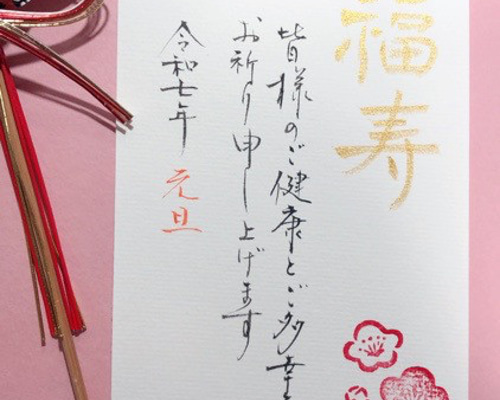 福寿
皆様のご健康とご多幸
お祈り申し上げます
令和七年 元旦